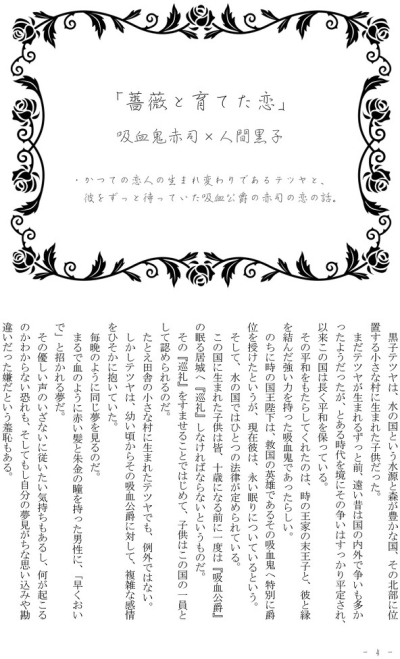 「薔薇と育てた恋」
吸血鬼赤司×人間黒子
・かつての恋人の生まれ変わりであるテツヤと、
彼をずっと待っていた吸血公爵の赤司の恋の話。
黒子テツヤは、水の国という水源と森が豊かな国、その北部に位
置する小さな村に生まれた子供だった。
まだテツヤが生まれるずっと前、遠い昔は国の内外で争いも多か
ったようだったが、とある時代を境にその争いはすっかり平定され、
以来この国は長く平和を保っている。
その平和をもたらしてくれたのは、時の王家の末王子と、彼と縁
を結んだ強い力を持った吸血鬼であったらしい。
のちに時の国王陛下は、救国の英雄であるその吸血鬼へ特別に爵
位を授けたというが、現在彼は、永い眠りについているという。
そして、水の国ではひとつの法律が定められている。
この国に生まれた子供は皆、十歳になる前に一度は『吸血公爵』
の眠る居城へ『巡礼』しなければならないというものだ。
その『巡礼』をすませることではじめて、子供はこの国の一員と
して認められるのだ。
たとえ田舎の小さな村に生まれたテツヤでも、例外ではない。
しかしテツヤは、幼い頃からその吸血公爵に対して、複雑な感情
をひそかに抱いていた。
毎晩のように同じ夢を見るのだ。
まるで血のように赤い髪と朱金の瞳を持った男性に、「早くおい
で」と招かれる夢だ。
その優しい声のいざないに従いたい気持ちもあるし、何が起こる
のかわからない恐れも、そしてもし自分の夢見がちな思い込みや勘
違いだった嫌だという羞恥もある。
- 4 -